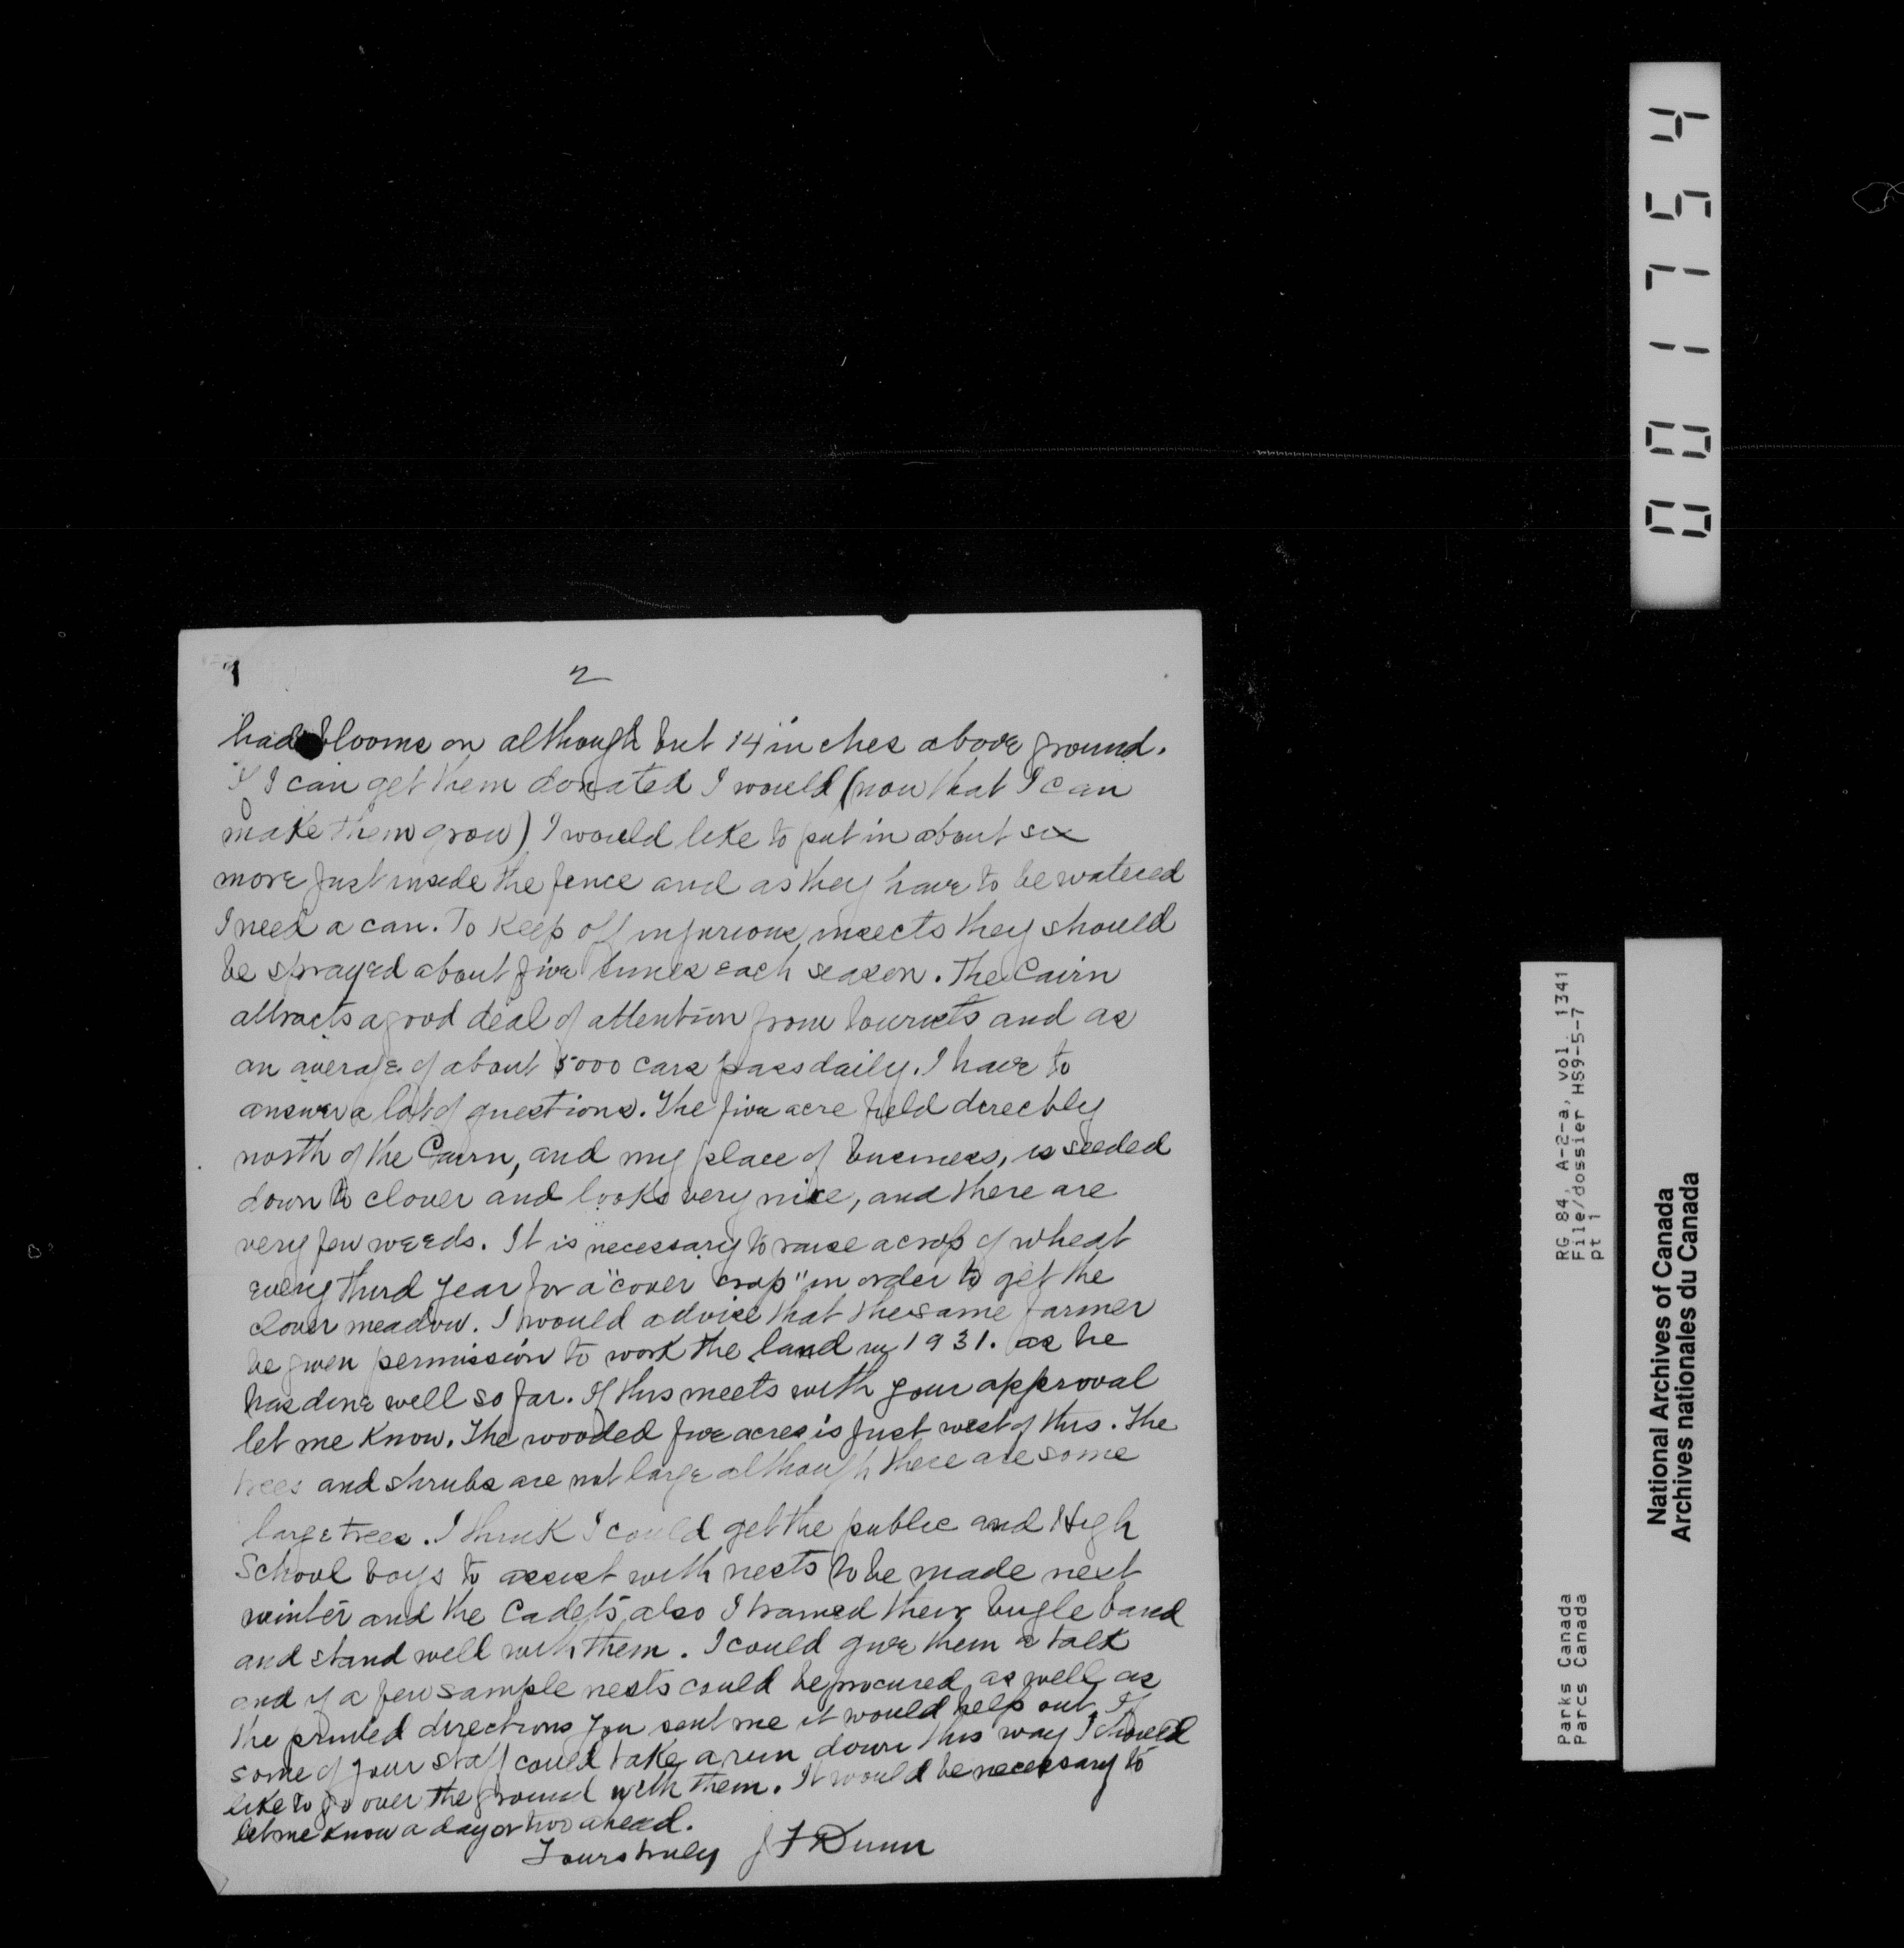 2
had blooms on although but 14 inches above ground.
If I can get them donated I would (now that I can
make them grow) I would like to put in about six
more just inside the fence and as they have to be watered
I need a can. To keep off injurious insects they should
be sprayed about five times each season. The Cairn
attracts a good deal of attention from tourists and as
an average of about 5000 cars pass daily. I have to
answer a lot of questions. The five acre field directly
north of the Cairn, and my place of business, is seeded
down to clover and looks very nice, and there are
very few weeds. It is necessary to raise a crop of wheat
every third year for a "cover crop" in order to get the
clover meadow. I would advise that the same farmer
be given permission to work the land in 1931. as he
has done well so far. If this meets with your approval
let me know. The wooded five acres is just west of this. The
trees and shrubs are not large although there are some
large trees. I think I could get the public and High
School boys to assist with nests to be made next
winter and the Cadets also I trained their bugle band
and stand well with them. I could give them a talk
and if a few sample nests could be procured, as well as
the printed directions you sent me it would help out. If
some of your staff could take a run down this way I should
like to go over the ground with them. It would be necessary to
let me know a day or two ahead.
Yours truly J F Dunn
001754
RG 84, A-2-a, vol. 1341
File/dossier HS9-5-7
pt 1
Parks Canada
Parcs Canada
National Archives of Canada
Archives nationales du Canada